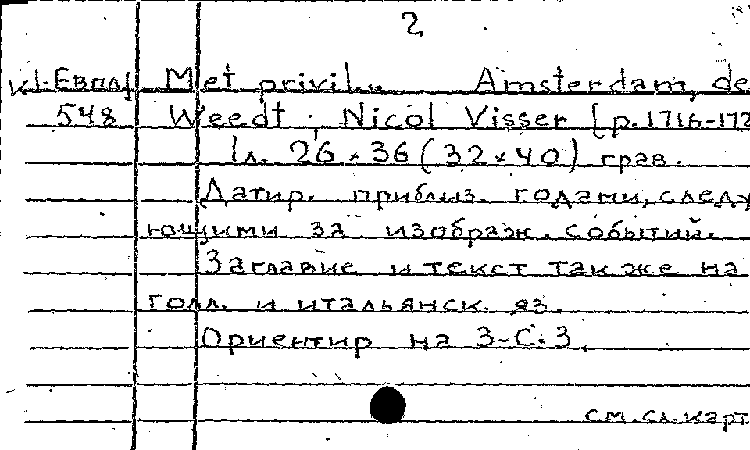 2
К1-Евпл Met privil. Amsterdam, de
548 Weedt. Nicol Visser [p.1716-172
1л. 26×36 (32×40) грав.
Датир. приблиз. годами, следу
ющими за изображ. событий.
Заглавие и текст также на
голл. и итальянск. яз.
Ориентир на З-С-З.
см. сл. карт